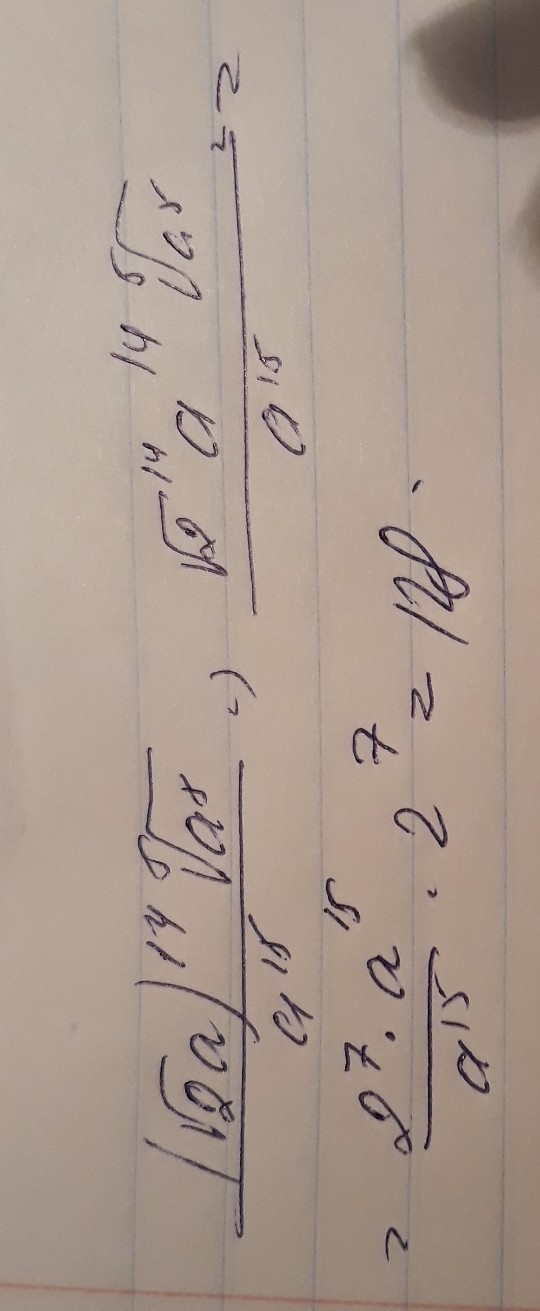 (√2a)¹⁴ ⁵√a⁵ / a¹⁵ = √2¹⁴ a¹⁴ ⁵√a⁵ / a¹⁵ =
= 2⁷ · a¹⁵ / a¹⁵ · 2⁷ = 128.